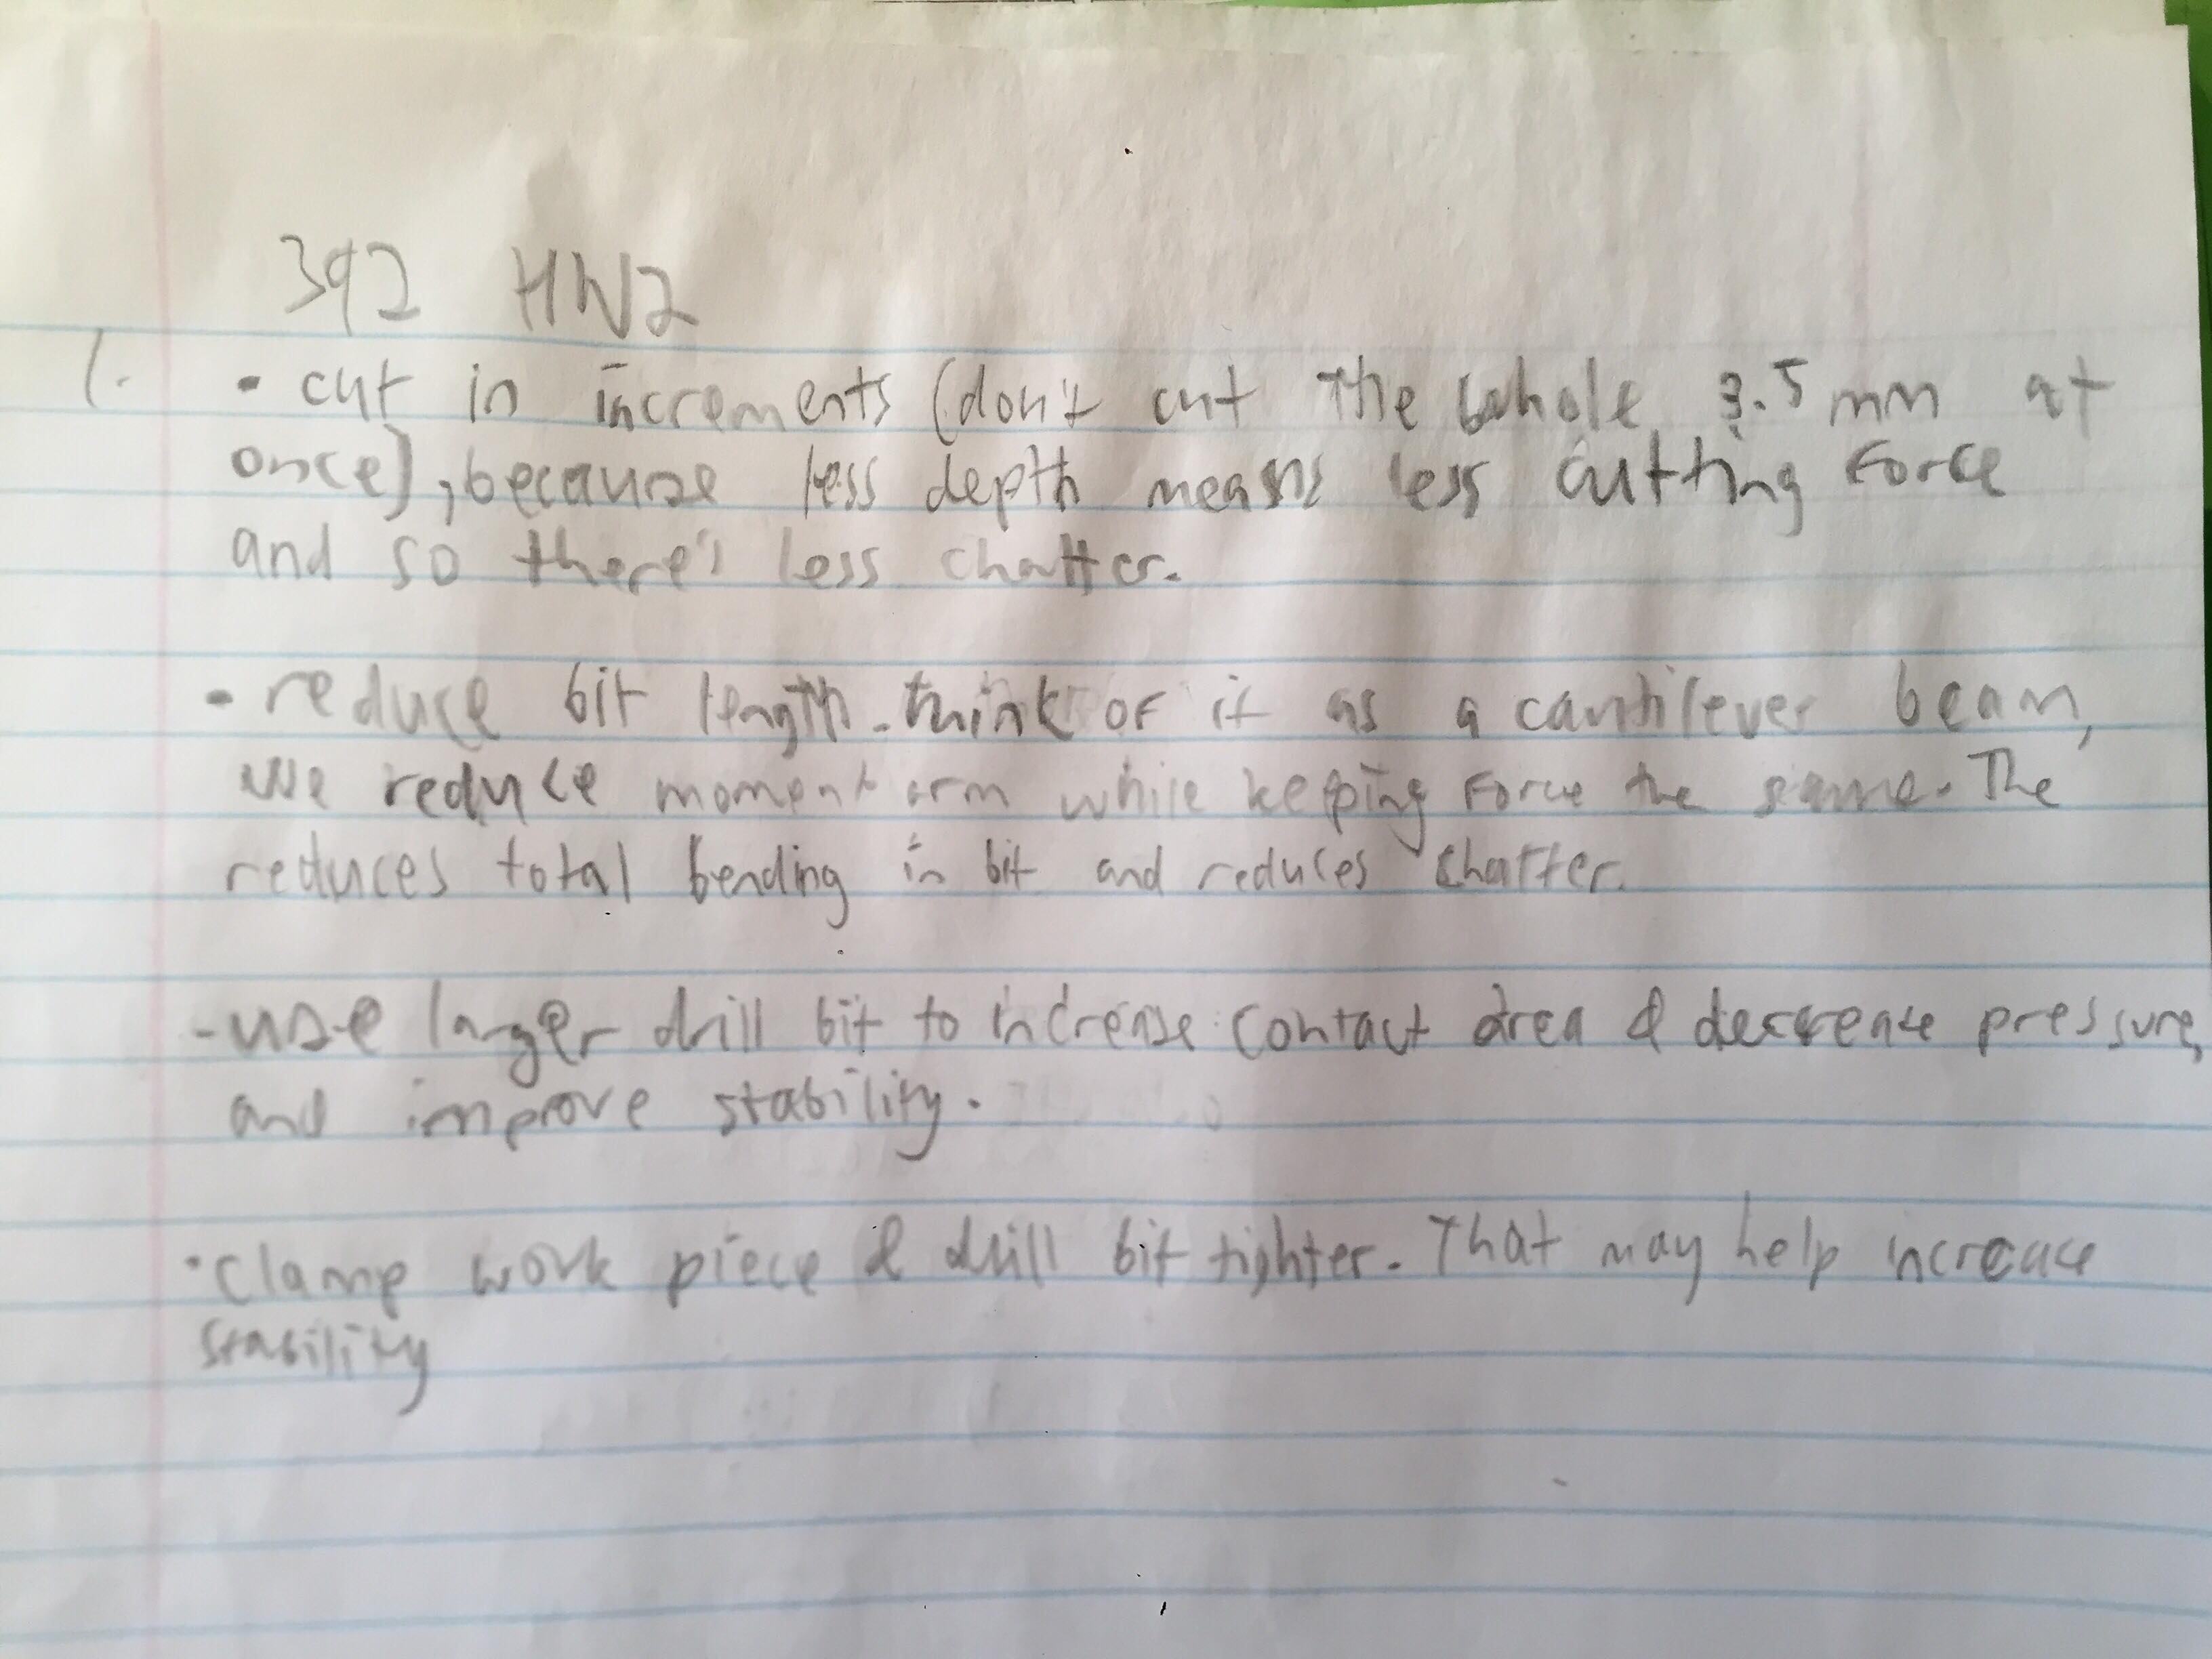 392 HW2
1. • cut in increments (don't cut the whole 3.5 mm at
once), because less depth means less cutting force
and so there's less chatter.
• reduce bit length. think of it as a cantilever beam,
we reduce moment arm while keeping force the same. The
reduces total bending in bit and reduces chatter.
- use larger drill bit to increase contact area & decrease pressure,
and improve stability.
• clamp work piece & drill bit tighter. That may help increase
stability